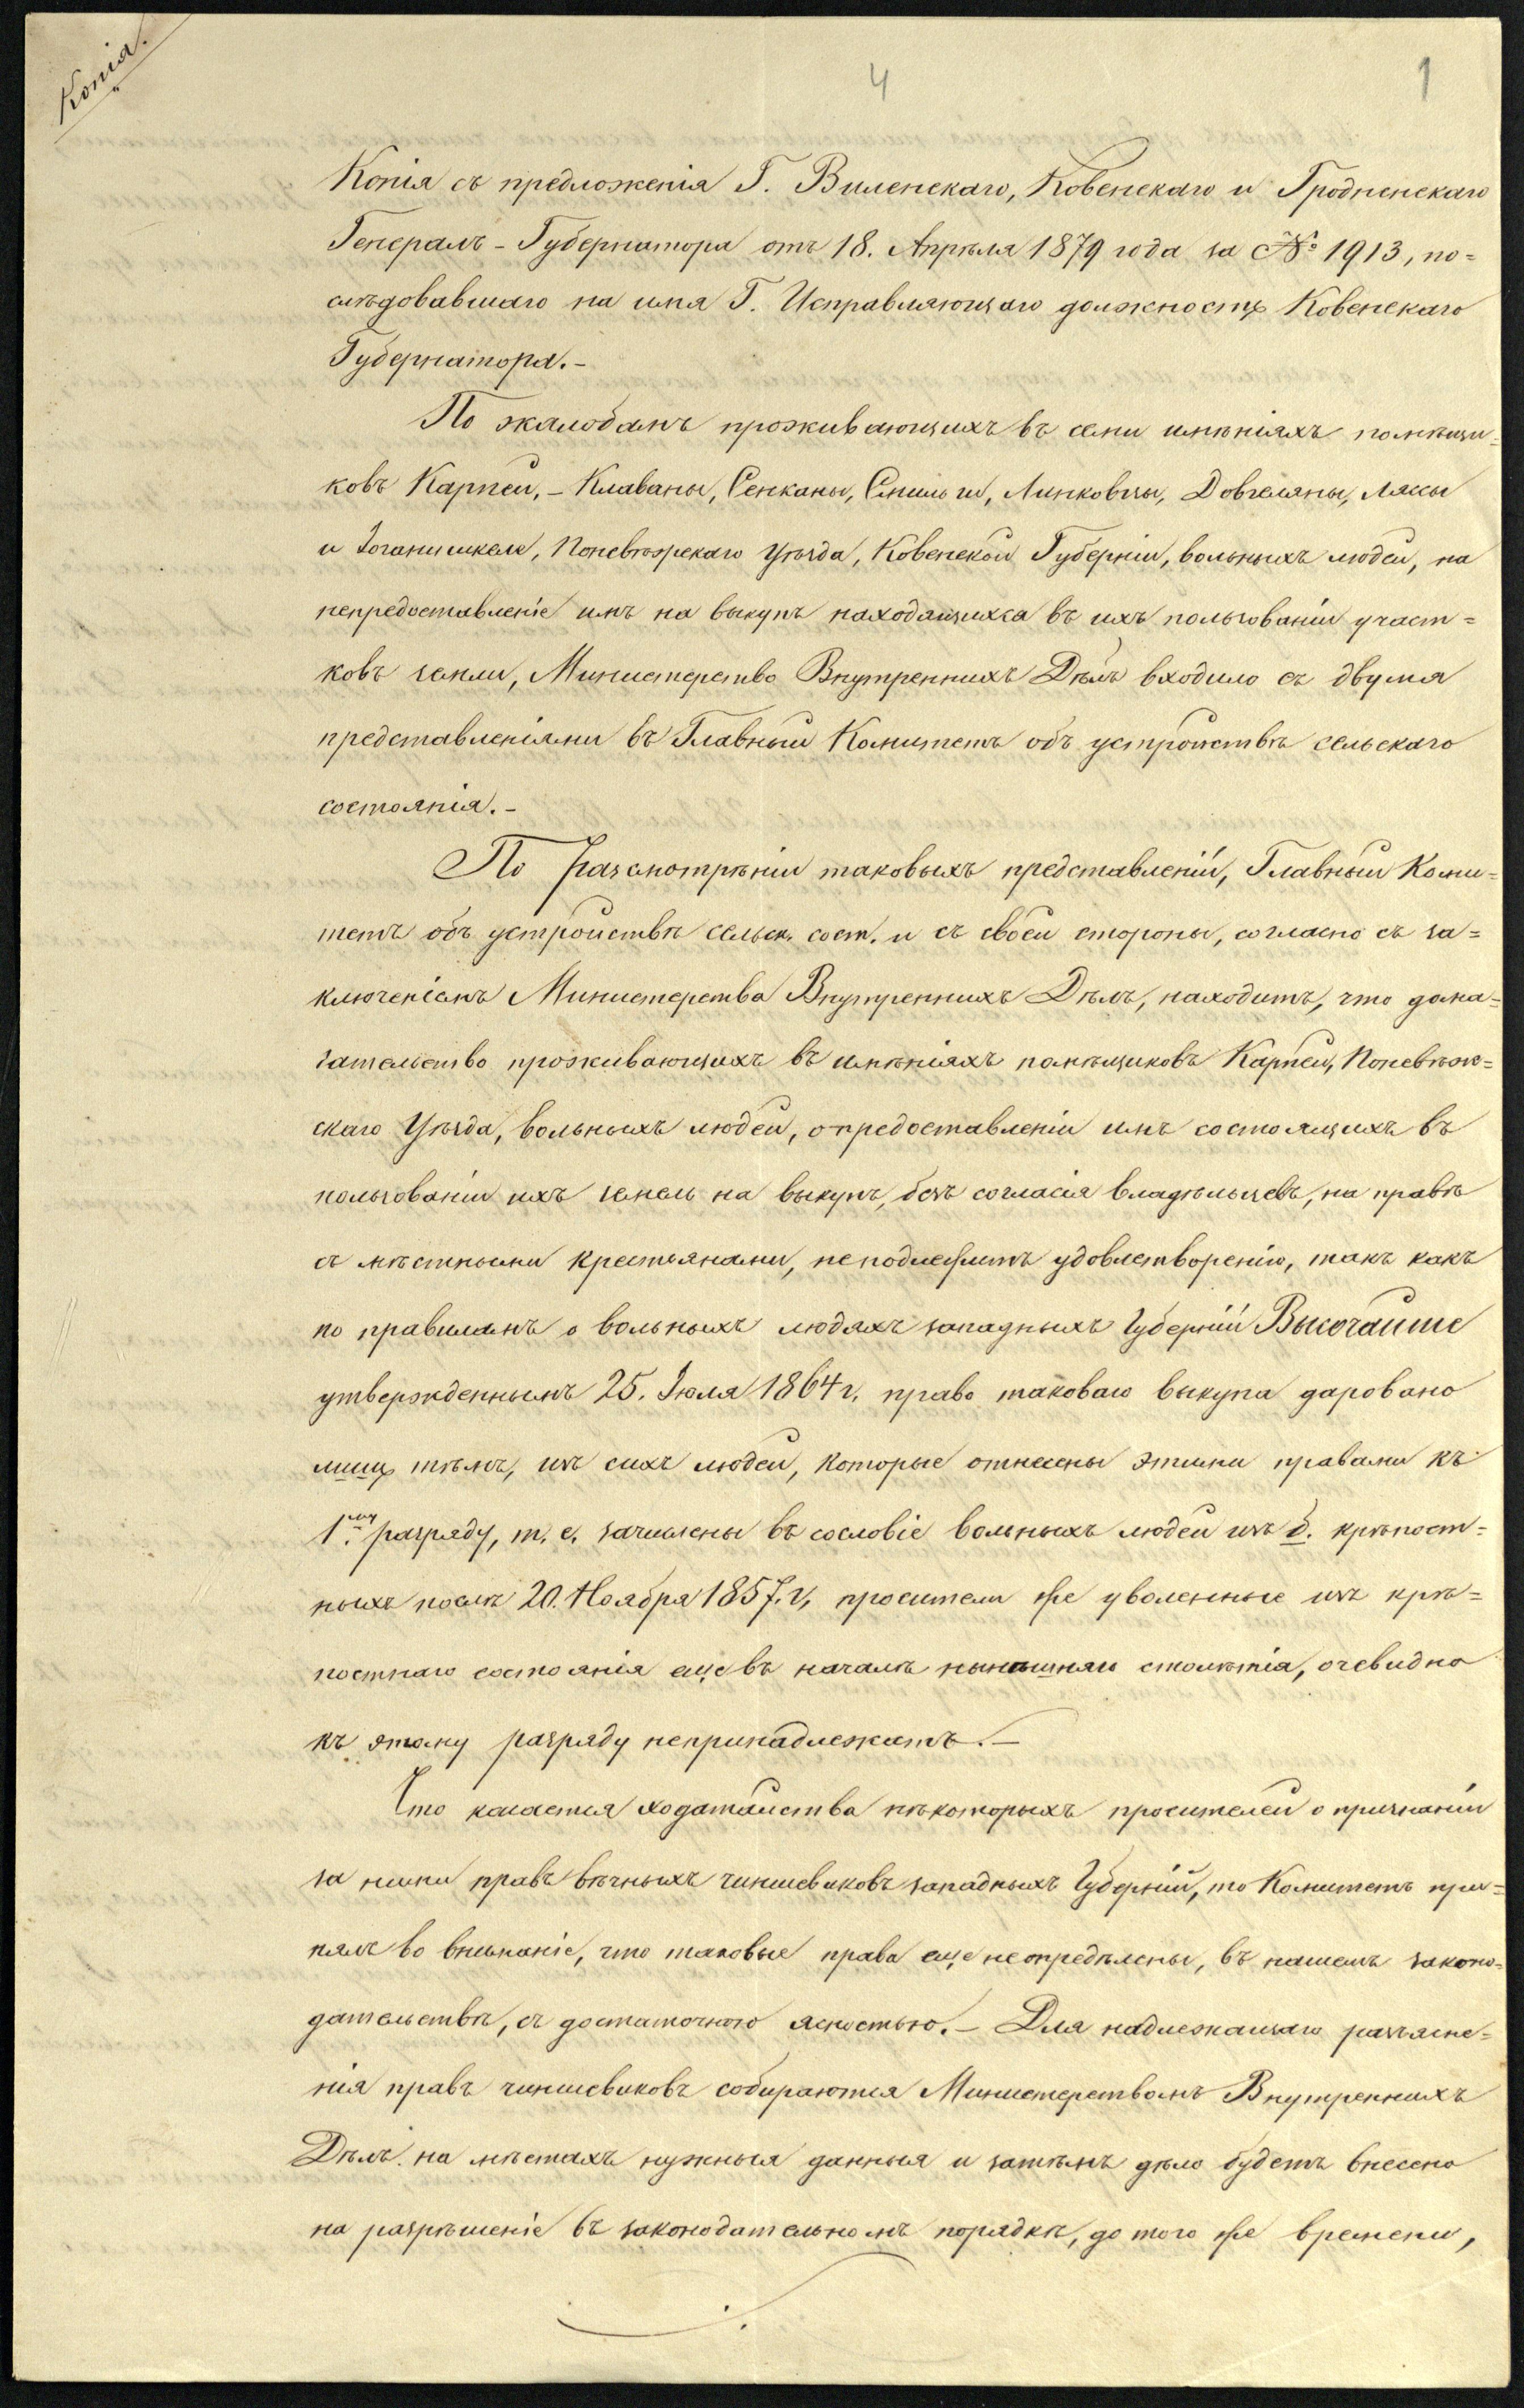 Копія.
4
1
Копія съ предложенія Г. Виленскаго, Ковенскаго и Гродненскаго
Генералъ-Губернатора отъ 18. Апрѣля 1879 года за № 1913, по=
слѣдовавшаго на имя Г. Исправляющаго должность Ковенскаго
Губернатора.-
По жалобамъ проживающихъ въ семи имѣніяхъ помѣщи=
ковъ Карпей, - Клаваны, Сенканы, Смильги, Линковцы, Довгеляны, Ляссы
и Іоганишкеле, Поневѣжскаго Уѣзда, Ковенской Губерніи, вольныхъ людей, на
непредоставленіе имъ на выкупъ находящихся въ ихъ пользованіи участ=
ковъ земли, Министерство Внутреннихъ Дѣлъ входило съ двумя
представленіями въ Главный Комитетъ объ устройствѣ сельскаго
состоянія.-
По разсмотрѣніи таковыхъ представленій, Главный Коми=
тетъ объ устройствѣ сельск. сост. и съ своей стороны, согласно съ за=
ключеніемъ Министерства Внутреннихъ Дѣлъ, находитъ, что дома=
гательство проживающихъ въ имѣніяхъ помѣщиковъ Карпей, Поневѣж=
скаго Уѣзда, вольныхъ людей, о предоставленіи имъ состоящихъ въ
пользованіи ихъ земель на выкупъ, безъ согласія владѣльцевъ, на правѣ
съ мѣстными крестьянами, не подлежитъ удовлетворенію, такъ какъ
по правиламъ о вольныхъ людяхъ западныхъ Губерній Высочайше
утвержденнымъ 25. Іюля 1864 г. право таковаго выкупа даровано
лишь тѣмъ, изъ сихъ людей, которые отнесены этими правами къ
1му. разряду, т. е. зачислены въ сословіе вольныхъ людей изъ б. крѣпост=
ныхъ послѣ 20. Ноября 1857. г, просители же уволенные изъ крѣ=
постнаго состоянія еще въ началѣ нынѣшняго столѣтія, очевидно
къ этому разряду непринадлежатъ.-
Что касается ходатайства нѣкоторыхъ просителей о признаніи
за ними правъ вѣчныхъ чиншевиковъ западныхъ Губерній, то Комитетъ при=
нялъ во вниманіе, что таковые права еще не опредѣлены, въ нашемъ законо=
дательствѣ, съ достаточною ясностью.- Для надлежащаго разъясне=
нія правъ чиншевиковъ собираются Министерствомъ Внутреннихъ
Дѣлъ на мѣстахъ нужныя данныя и затѣмъ дѣло будетъ внесено
на разрѣшеніе въ законодательномъ порядкѣ, до того же времени,